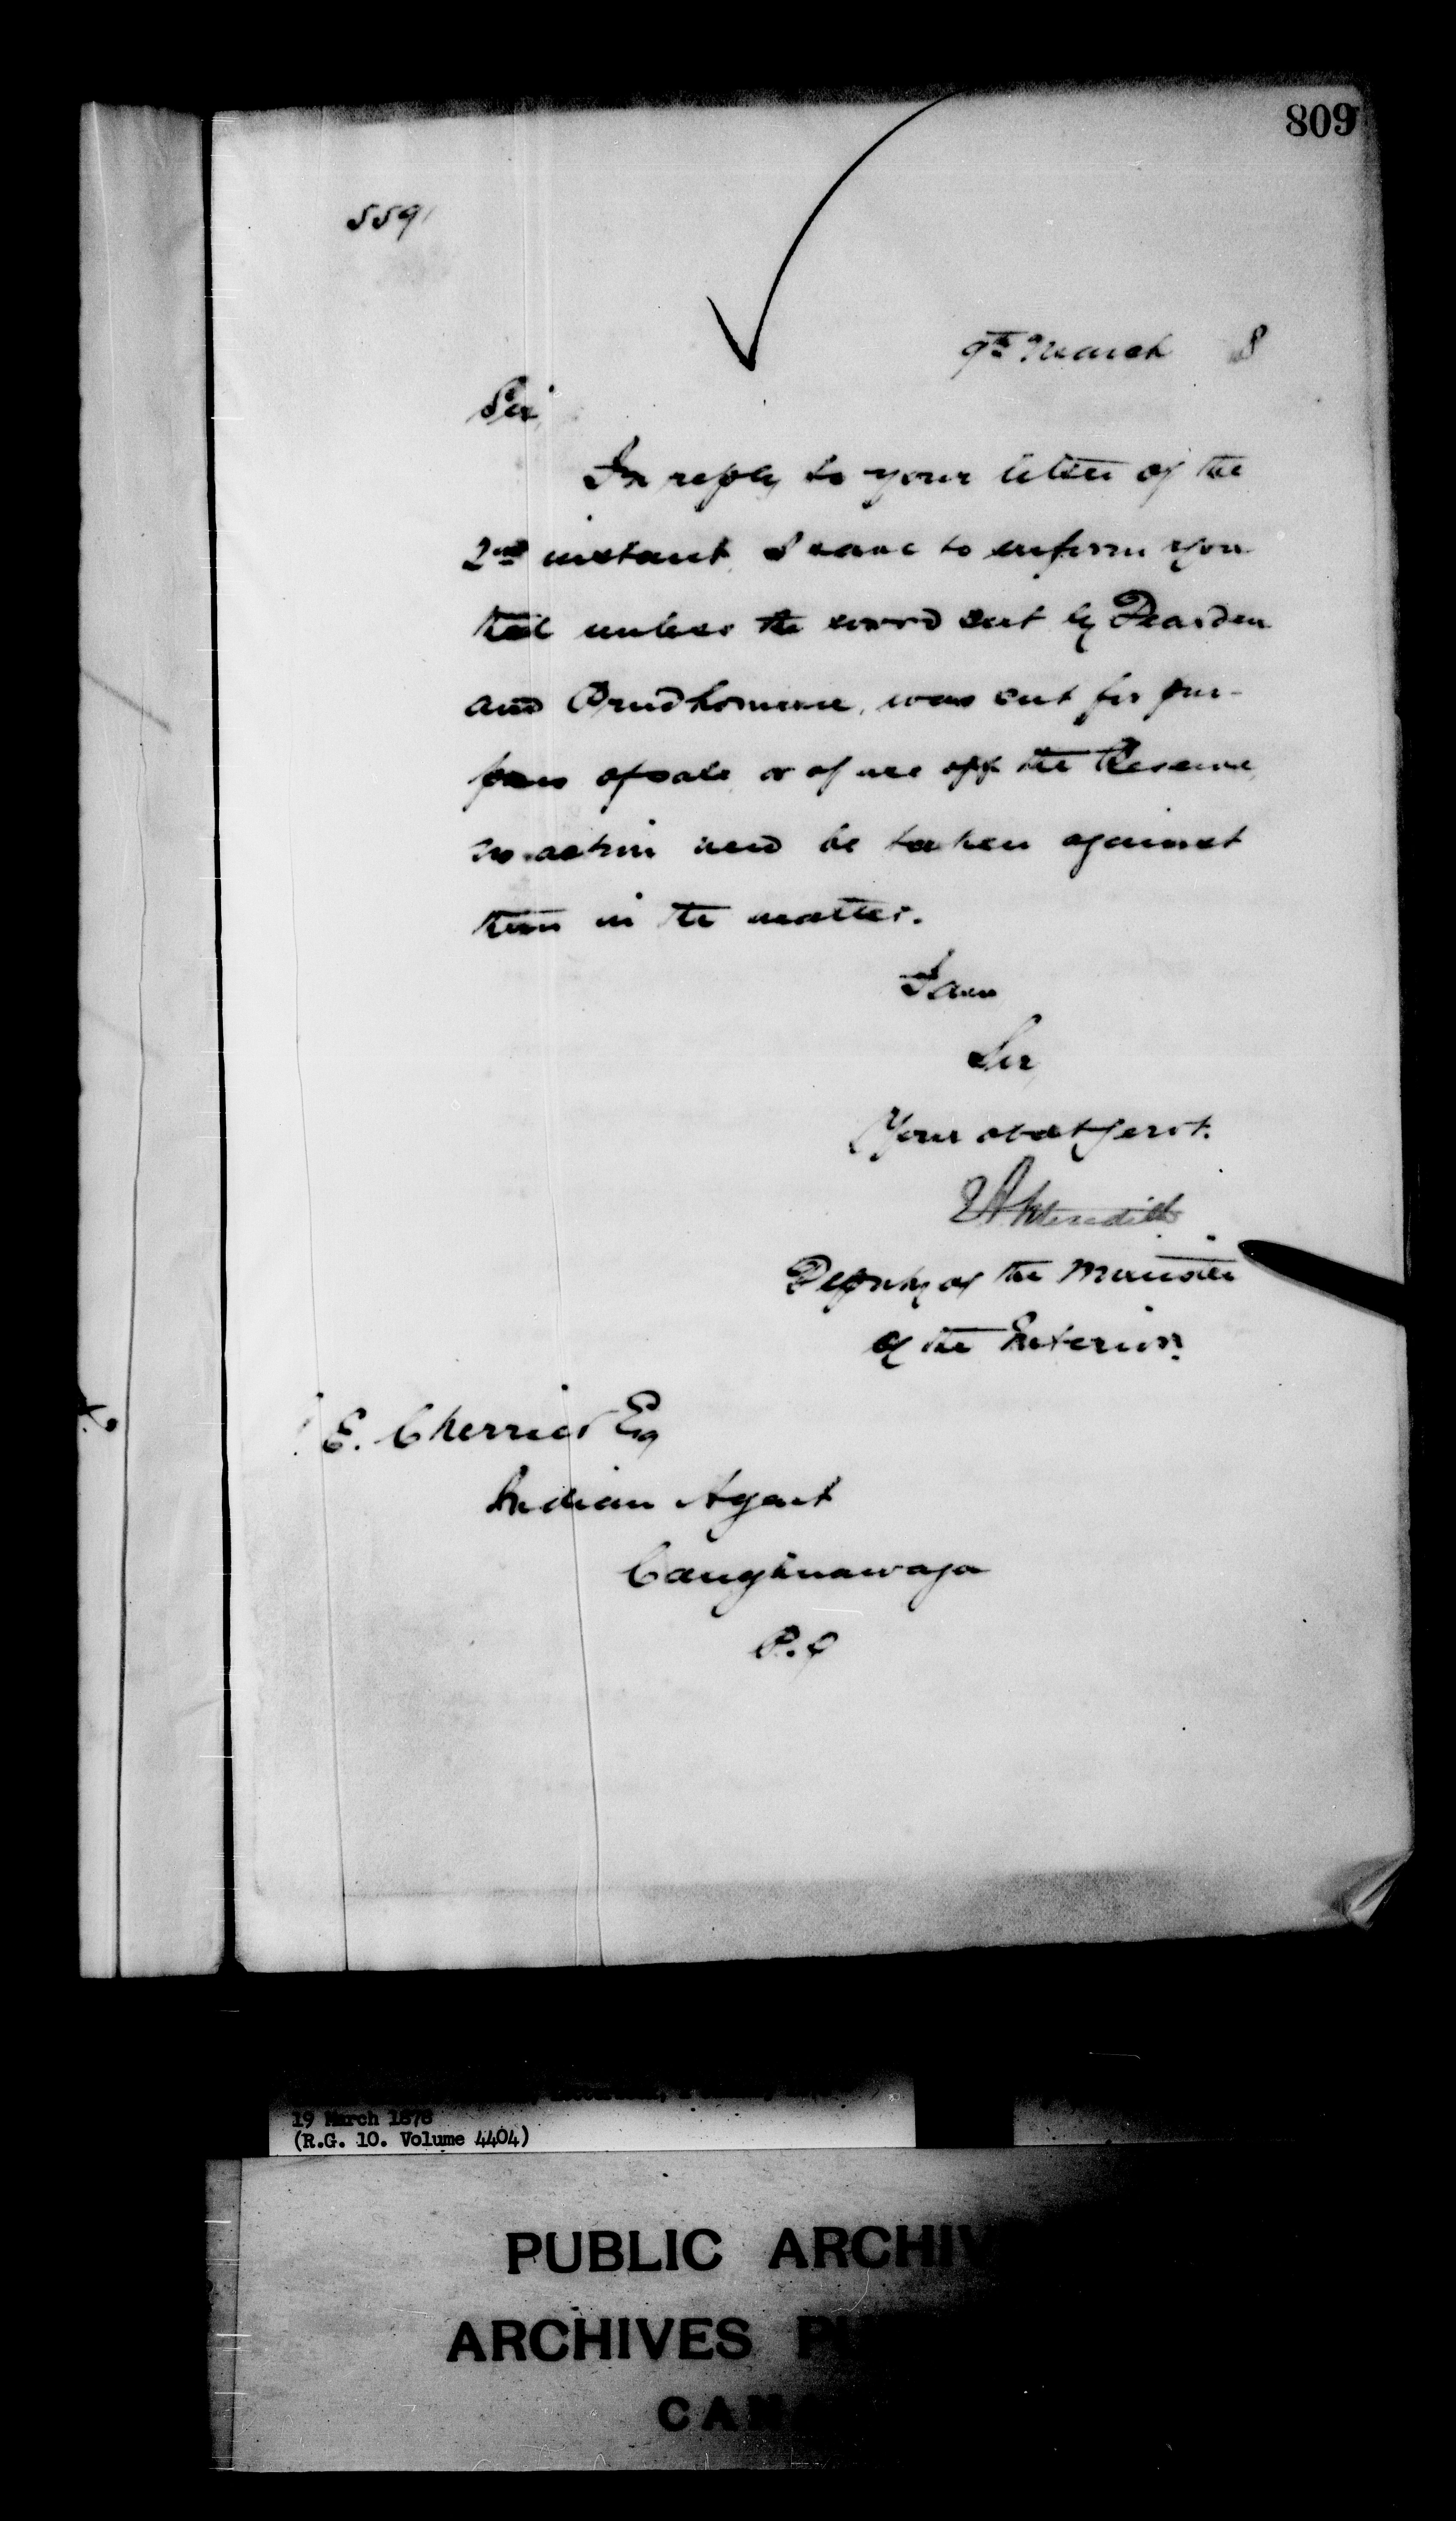 809
5591
9th March 8
Sir,
In reply to your letter of the
2nd instant, I have to inform you
that unless the wood cut by Dearden
and Prudhomme, was cut for pur-
poses of sale or of use off the Reserve,
no action need be taken against
them in the matter.
I am
Sir,
Your obedt servt.
Meredith
Deputy of the Minister
of the Interior.
E. Cherrier Esq
Indian Agent
Caughnawaga
P.Q
19 March 1878
(R.G. 10. Volume 4404)
PUBLIC ARCHIV
ARCHIVES PU
CANA